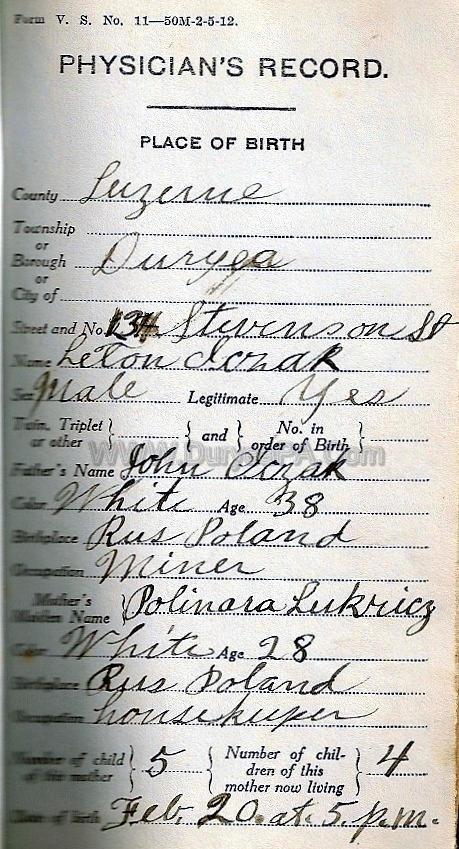 Form V. S. No. 11—50M-2-5-12.
PHYSICIAN'S RECORD.
PLACE OF BIRTH
County Luzerne
Township
or
Borough Duryea
or
City of
Street and No. 134 Stevenson St
Name Leon Oczak
Sex Male Legitimate Yes
Twin, Triplet or other } { and { No. in order of Birth }
Father's Name John Oczak
Color White Age 38
Birthplace Rus Poland
Occupation Miner
Mother's Maiden Name } Polinara Lukricz
Color White Age 28
Birthplace Rus Poland
Occupation housekeeper
Number of child of this mother } 5 { Number of children of this mother now living } 4
Date of birth Feb. 20. at. 5. p.m.